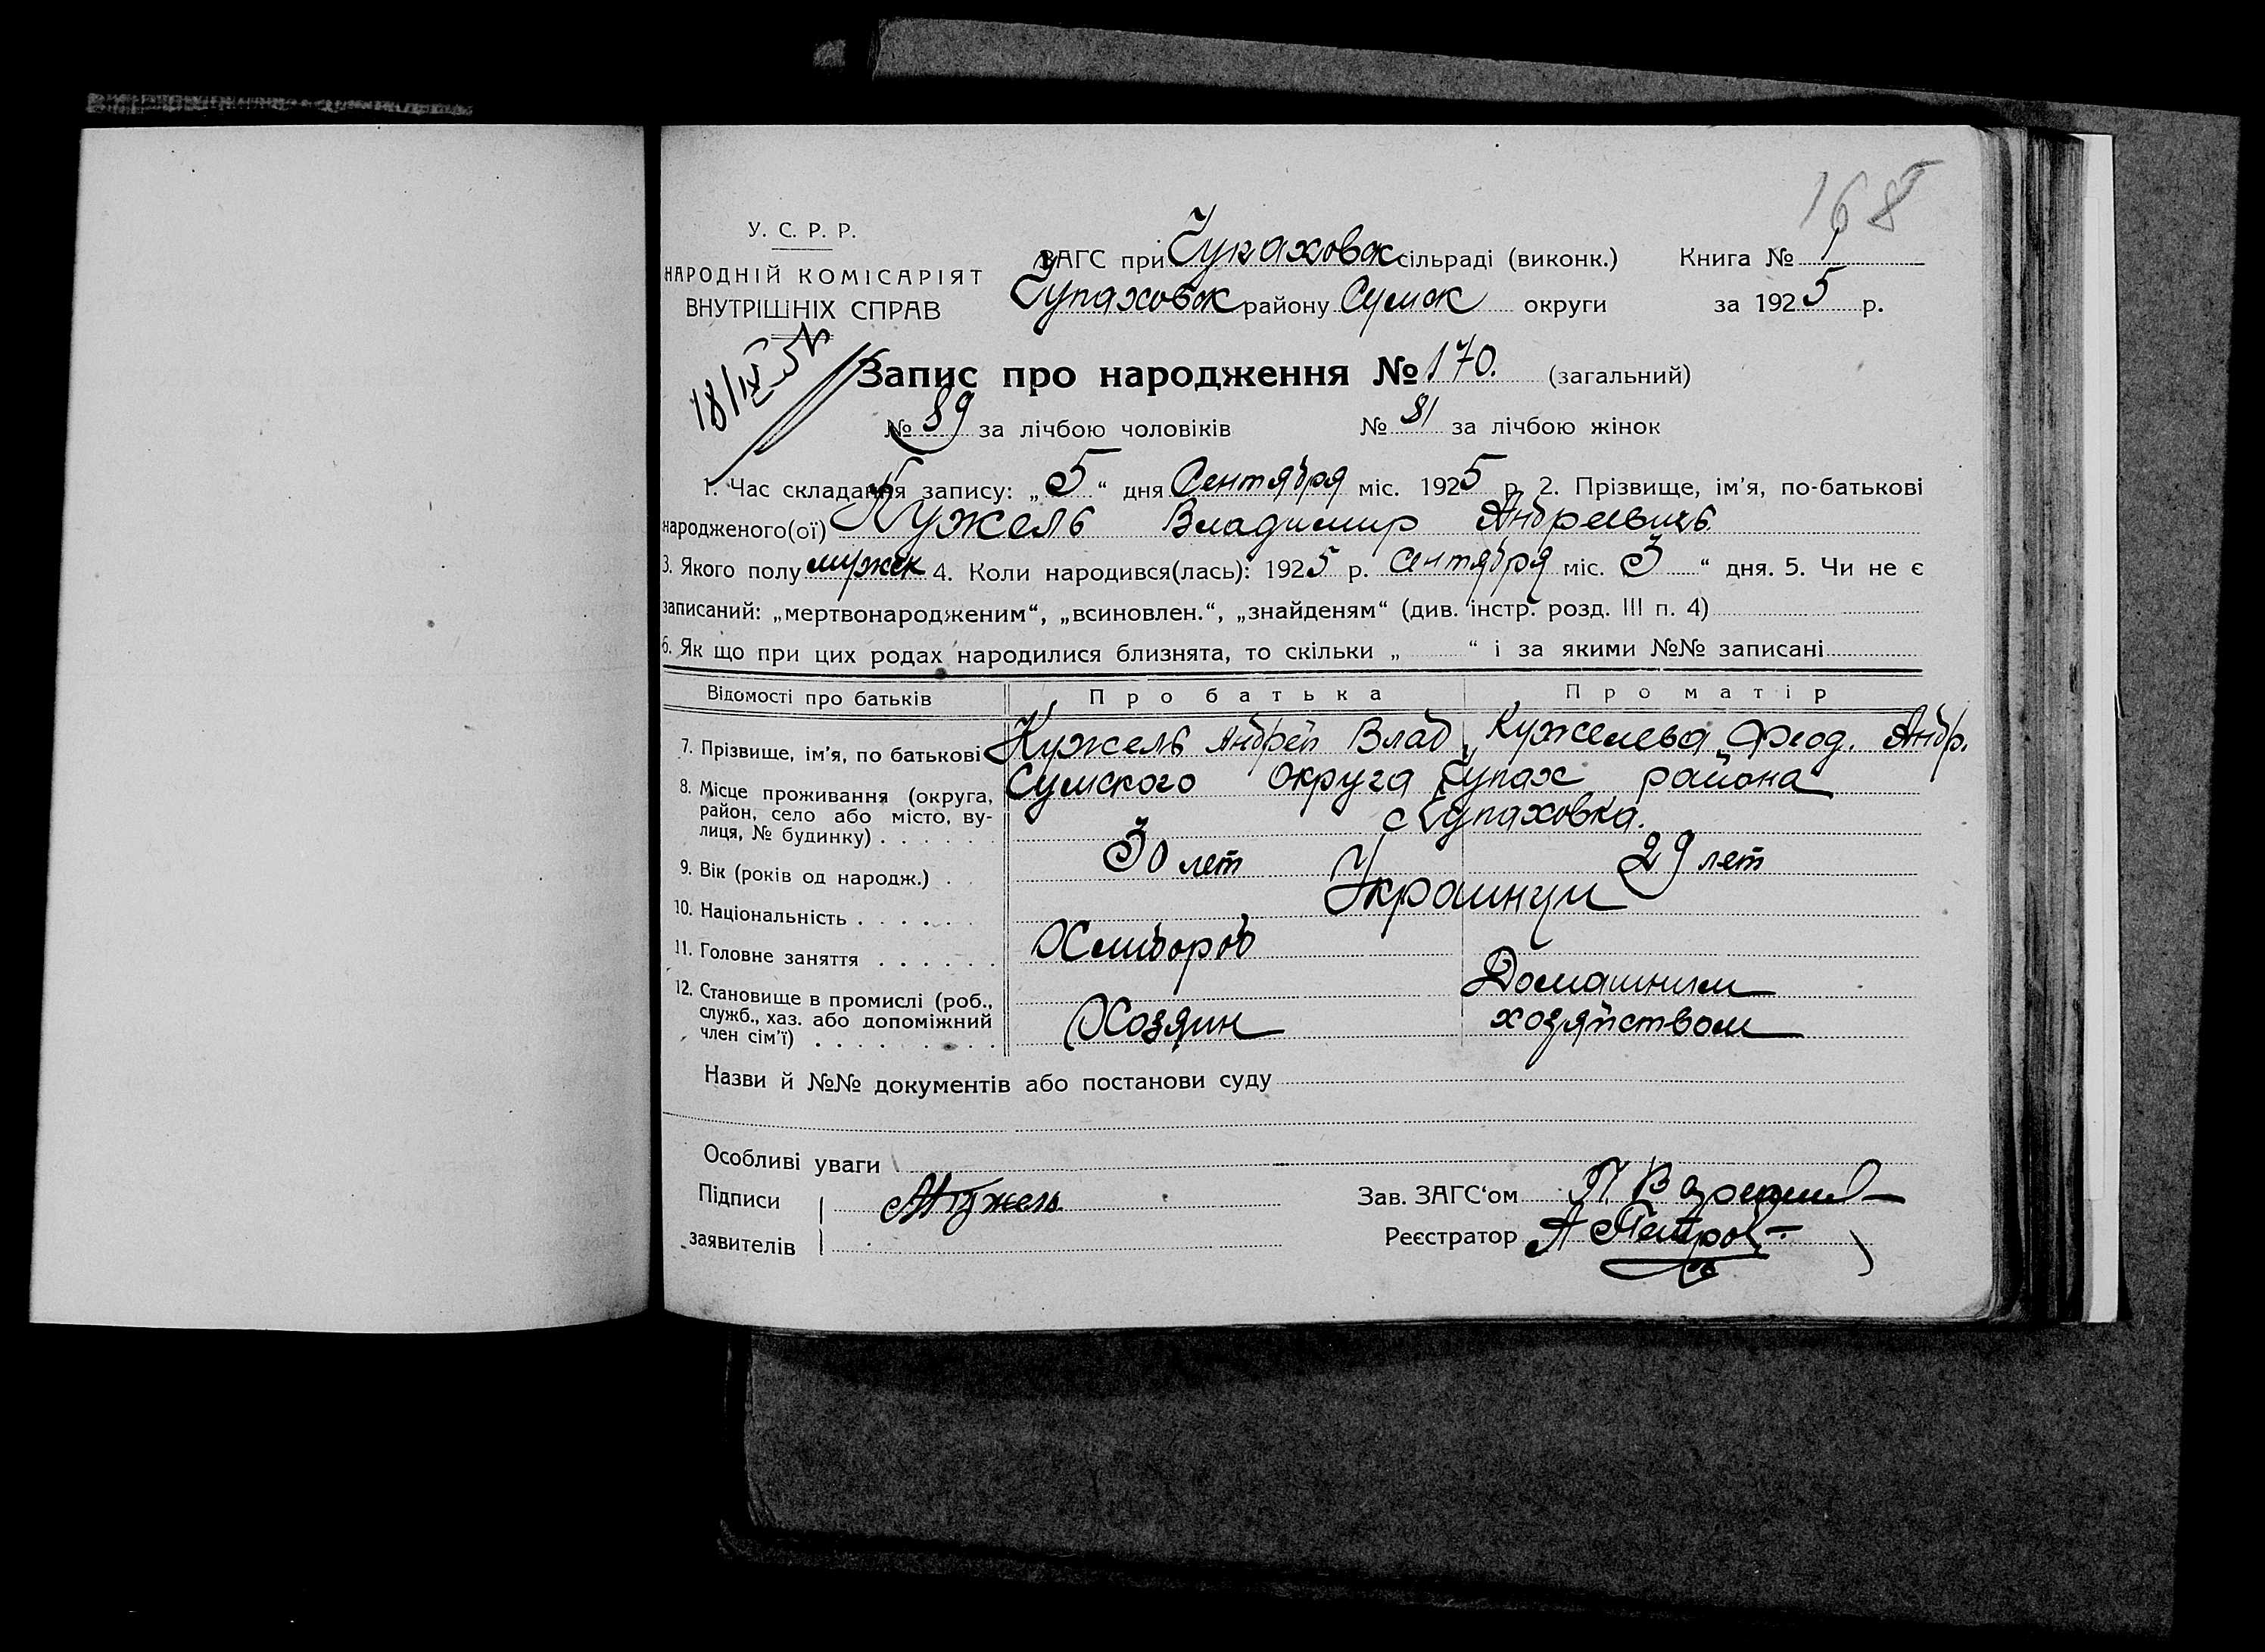 168
У. С. Р. Р.
НАРОДНІЙ КОМІСАРІЯТ
ВНУТРІШНІХ СПРАВ
ЗАГС при Чупаховск сільраді (виконк.) Книга № 1
Чупаховск району Сумск округи за 1925 р.
18/IX-5
Запис про народження № 170. (загальний)
№ 89 за лічбою чоловіків № 81 за лічбою жінок
1. Час складання запису: „5“ дня Сентября міс. 1925 р. 2. Прізвище, ім’я, по-батькові
народженого(ої) Кужель Владимир Андреевичь.
3. Якого полу мужск 4. Коли народився(лась): 1925 р. Сентября міс. 3 “ дня. 5. Чи не є
записаний: „мертвонародженим“, „всиновлен.“, „знайденям“ (див. інстр. розд. III п. 4)
6. Як що при цих родах народилися близнята, то скільки „ “ і за якими №№ записані
Відомості про батьків Про батька Про матір
7. Прізвище, ім’я, по батькові Кужель Андрей Влад. Кужелева Феод. Андр.
8. Місце проживання (округа, район, село або місто, вулиця, № будинку) Сумского округа Чупах района
с Чупаховка.
9. Вік (років од народж.) 30 лет 29 лет
10. Національність Украинци
11. Головне заняття Хлибороб
12. Становище в промислі (роб., служб., хаз. або допоміжний член сім’ї) Хозяин Домашним
хозяйством
Назви й №№ документів або постанови суду
Особливі уваги
Підписи АКужель Зав. ЗАГС‘ом
заявителів Реєстратор А Петров